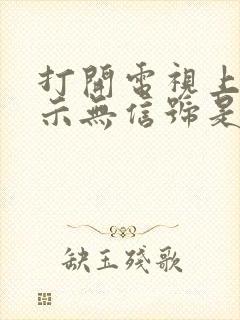 打開電視上
示無信號是
缺玉殘歌